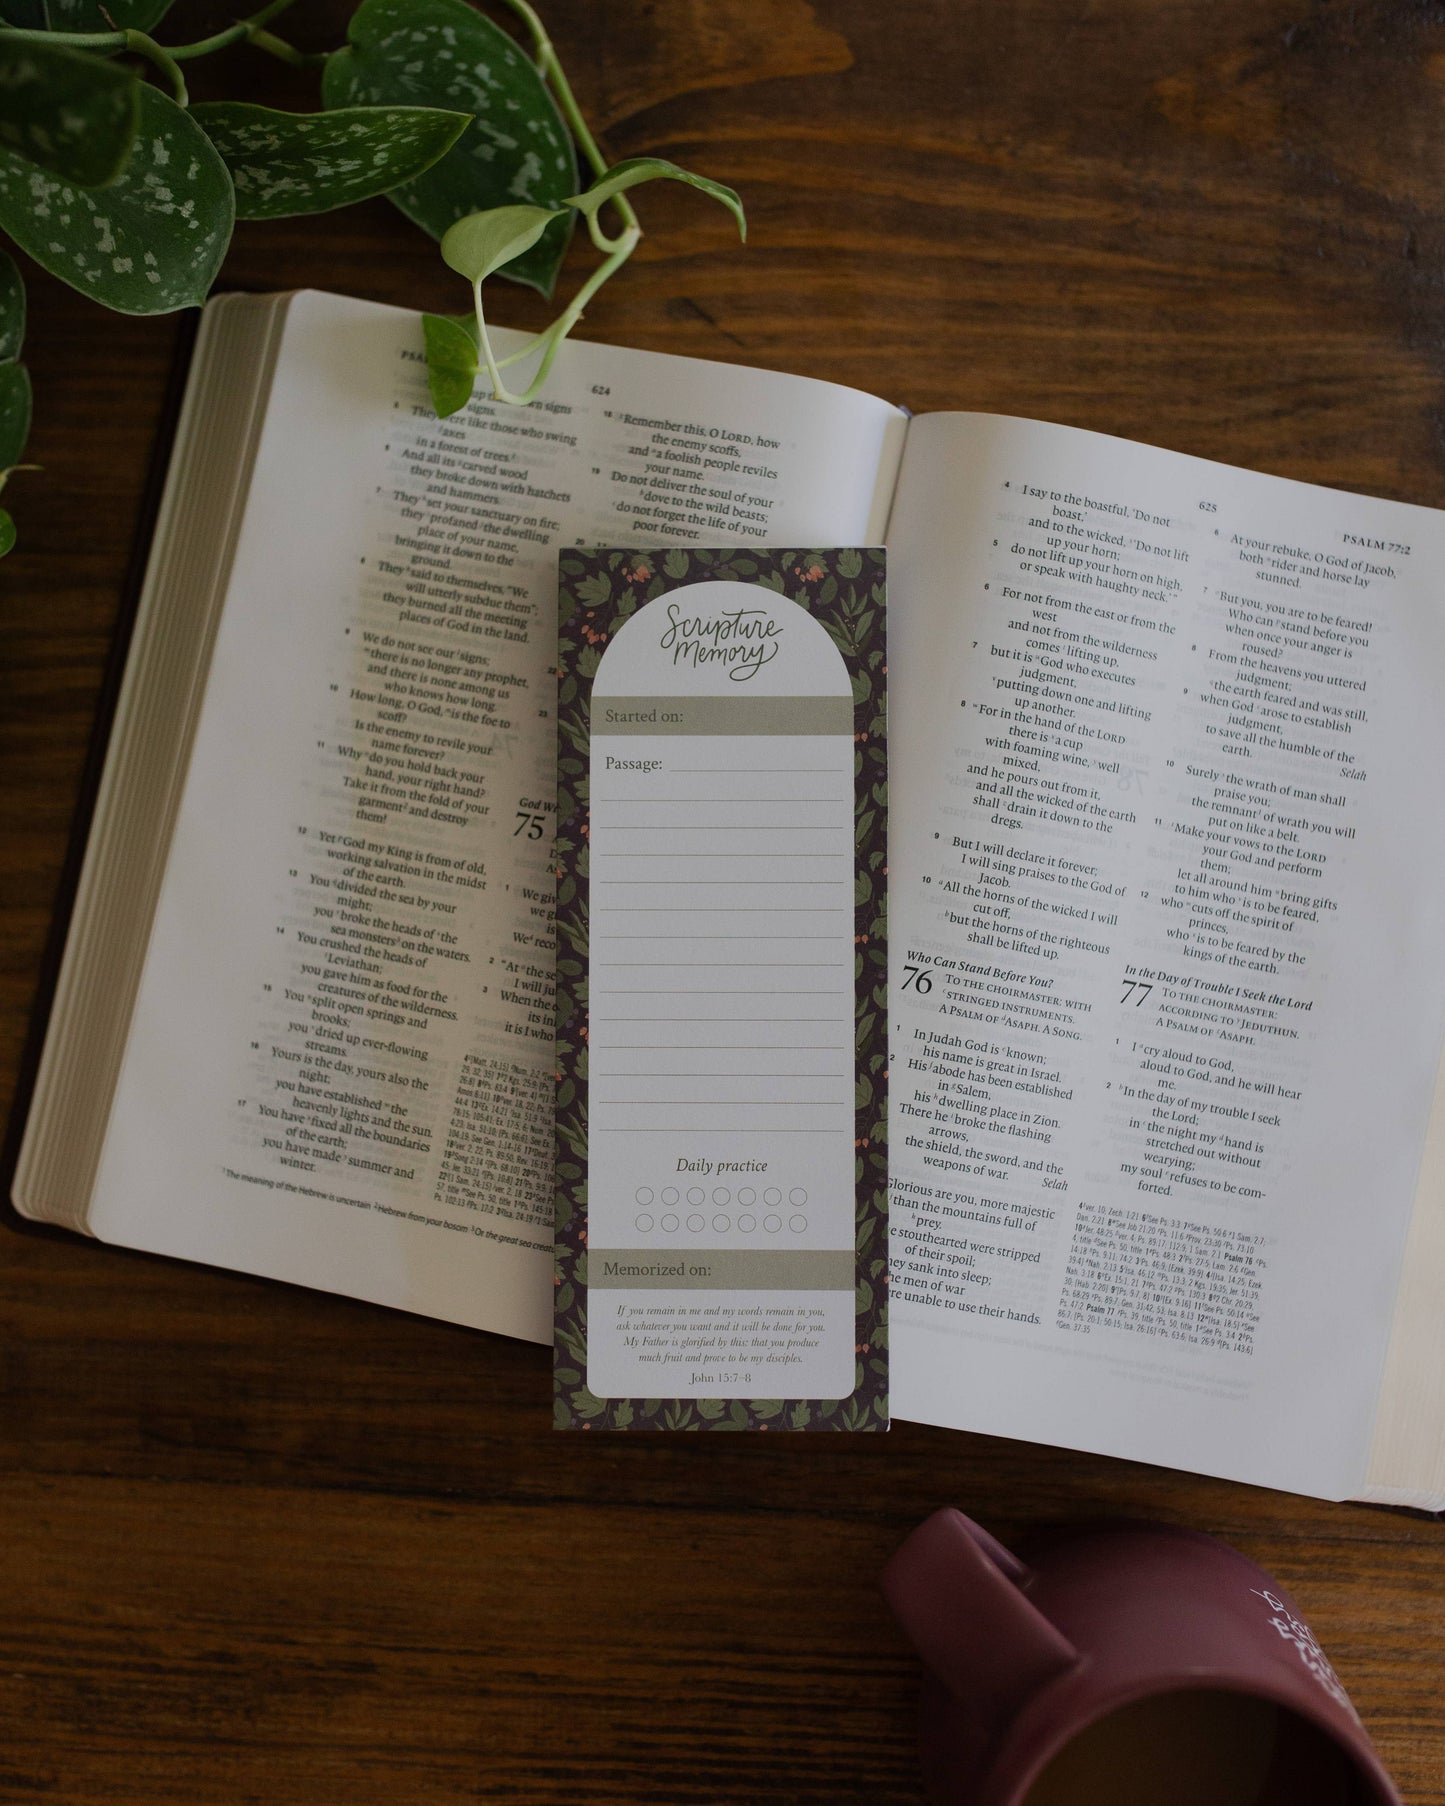 624
up the carved wooden signs
signs.
5 They were like those who swing
axes
in a forest of trees.
6 And all its carved wood
they broke down with hatchets
and hammers.
7 They set your sanctuary on fire;
they profaned the dwelling
place of your name,
bringing it down to the
ground.
8 They said to themselves, "We
will utterly subdue them";
they burned all the meeting
places of God in the land.
9 We do not see our signs;
there is no longer any prophet,
and there is none among us
who knows how long.
10 How long, O God, is the foe to
scoff?
Is the enemy to revile your
name forever?
11 Why do you hold back your
hand, your right hand?
Take it from the fold of your
garment and destroy
them!
12 Yet God my King is from of old,
working salvation in the midst
of the earth.
13 You divided the sea by your
might;
you broke the heads of the
sea monsters on the waters.
14 You crushed the heads of
Leviathan;
you gave him as food for the
creatures of the wilderness.
15 You split open springs and
brooks;
you dried up ever-flowing
streams.
16 Yours is the day, yours also the
night;
you have established the
heavenly lights and the sun.
17 You have fixed all the boundaries
of the earth;
you have made summer and
winter.
18 Remember this, O LORD, how
the enemy scoffs,
and a foolish people reviles
your name.
19 Do not deliver the soul of your
dove to the wild beasts;
do not forget the life of your
poor forever.
20
22
23
God W
75
1 We giv
we g
is
We reco
2 "At the se
I will ju
3 When the
its in
it is I who
1 The meaning of the Hebrew is uncertain 2 Hebrew from your bosom 3 Or the great sea creatu
Scripture
Memory
Started on:
Passage:
Daily practice
Memorized on:
If you remain in me and my words remain in you,
ask whatever you want and it will be done for you.
My Father is glorified by this: that you produce
much fruit and prove to be my disciples.
John 15:7–8
625
PSALM 77:2
4 I say to the boastful, 'Do not
boast,'
and to the wicked, 'Do not lift
up your horn;
5 do not lift up your horn on high,
or speak with haughty neck.'"
6 For not from the east or from the
west
and not from the wilderness
comes lifting up,
7 but it is God who executes
judgment,
putting down one and lifting
up another.
8 For in the hand of the LORD
there is a cup
with foaming wine, well
mixed,
and he pours out from it,
and all the wicked of the earth
shall drain it down to the
dregs.
9 But I will declare it forever;
I will sing praises to the God of
Jacob.
10 All the horns of the wicked I will
cut off,
but the horns of the righteous
shall be lifted up.
Who Can Stand Before You?
76 TO THE CHOIRMASTER: WITH
STRINGED INSTRUMENTS.
A PSALM OF ASAPH. A SONG.
1 In Judah God is known;
his name is great in Israel.
2 His abode has been established
in Salem,
his dwelling place in Zion.
There he broke the flashing
arrows,
the shield, the sword, and the
weapons of war. Selah
Glorious are you, more majestic
than the mountains full of
prey.
e stouthearted were stripped
of their spoil;
hey sank into sleep;
he men of war
re unable to use their hands.
6 At your rebuke, O God of Jacob,
both rider and horse lay
stunned.
7 But you, you are to be feared!
Who can stand before you
when once your anger is
roused?
8 From the heavens you uttered
judgment;
the earth feared and was still,
9 when God arose to establish
judgment,
to save all the humble of the
earth. Selah
10 Surely the wrath of man shall
praise you;
the remnant of wrath you will
put on like a belt.
11 Make your vows to the LORD
your God and perform
them;
let all around him bring gifts
to him who is to be feared,
12 who cuts off the spirit of
princes,
who is to be feared by the
kings of the earth.
In the Day of Trouble I Seek the Lord
77 TO THE CHOIRMASTER:
ACCORDING TO JEDUTHUN.
A PSALM OF ASAPH.
1 I cry aloud to God,
aloud to God, and he will hear
me.
2 In the day of my trouble I seek
the Lord;
in the night my hand is
stretched out without
wearying;
my soul refuses to be com-
forted.